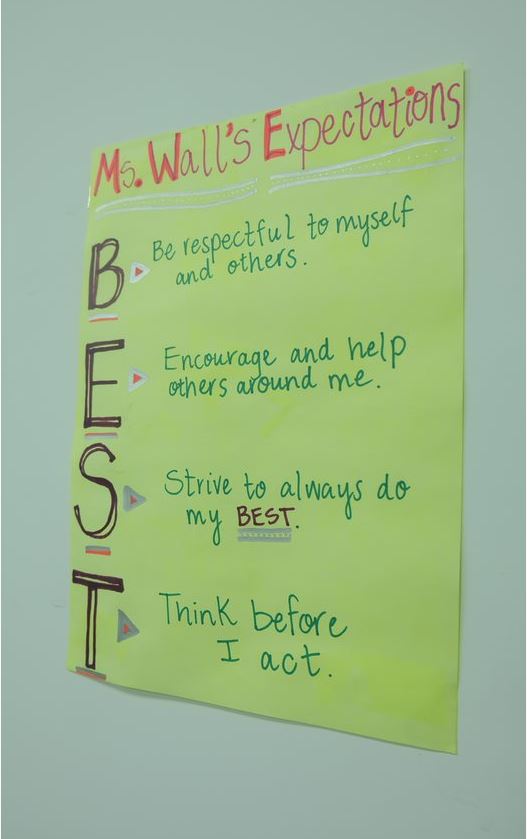 Ms. Wall's Expectations
B Be respectful to myself
and others.
E Encourage and help
others around me.
S Strive to always do
my BEST.
T Think before
I act.